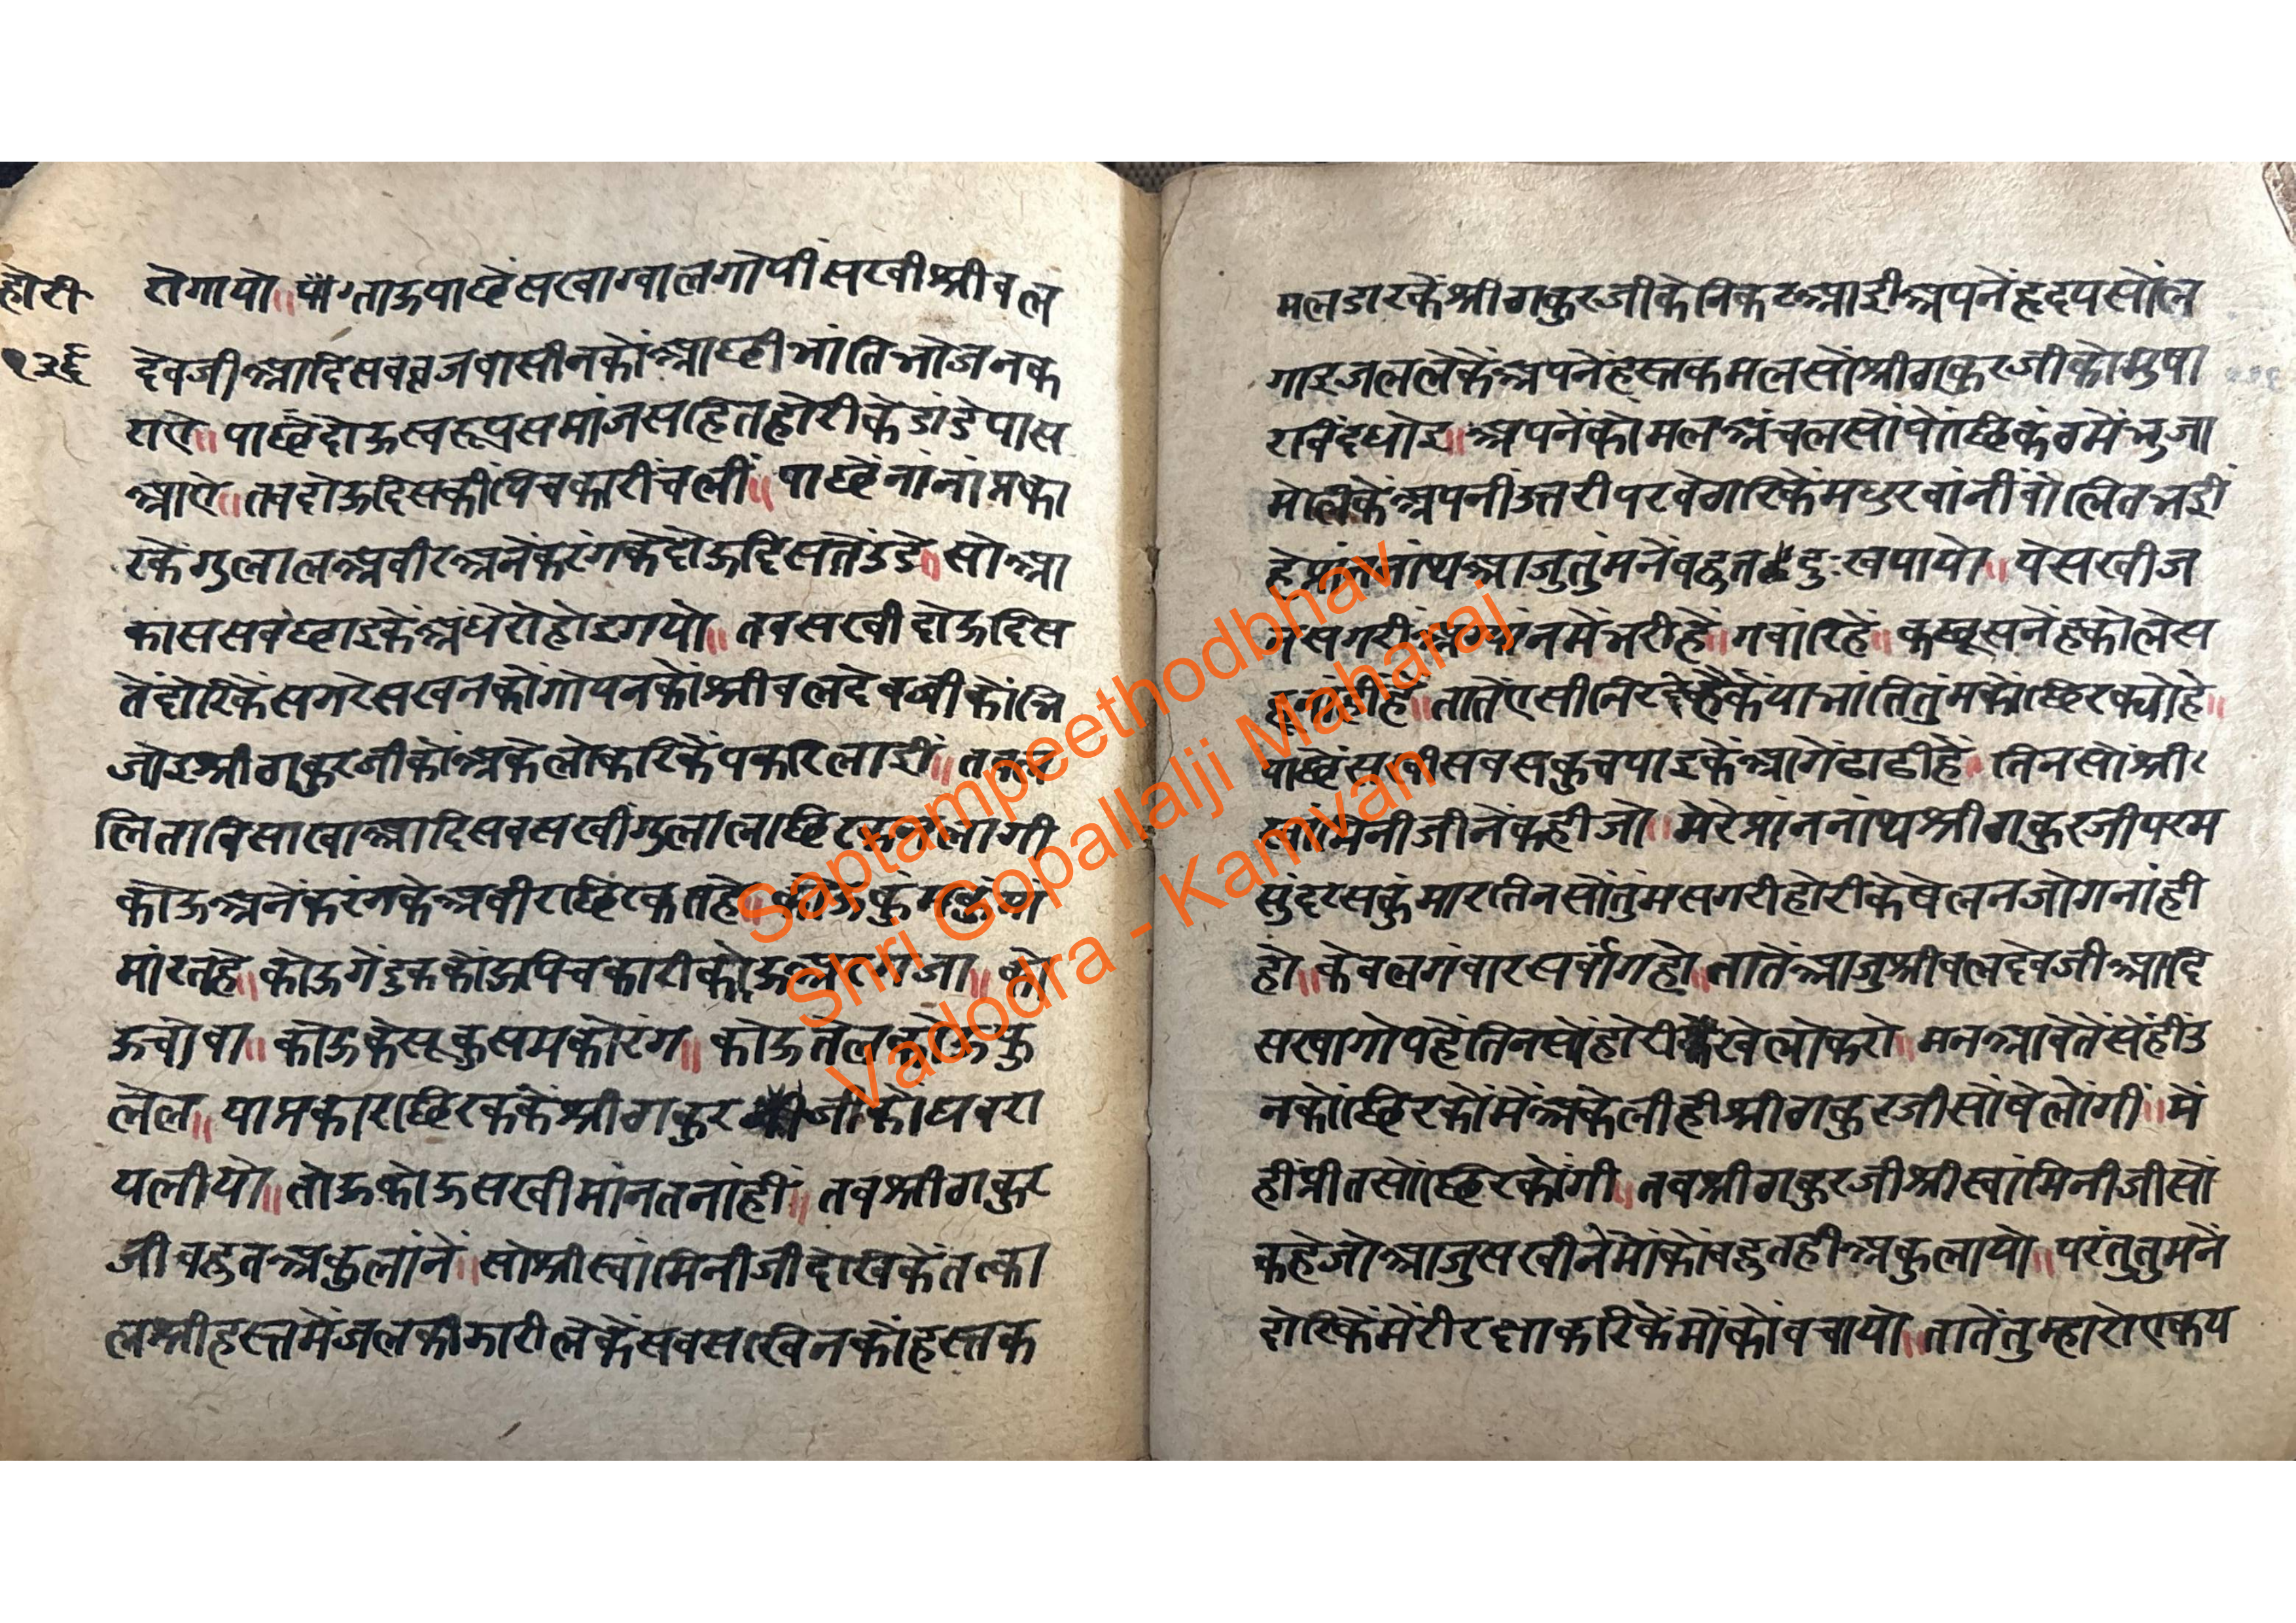 होरी
१३६
तेगायो॥ पाछेंसखाग्वालगोपीसखीश्रीबल
देवजीआदिसबब्रजवासीनकोंआछीभांतिभोजनक
राऐ॥पाछेंदोऊस्वरूपसमांजसहितहोरीकेडांडेपास
आऐ॥तबदोऊदिसकीपिचकारीचलीं॥ पाछेंनांनांप्रका
रकेगुलालअबीरअनेंकरंगकेदोऊदिसतेंउडे॥ सोआ
काससबछाइकेंअंधेरोहोइगयो॥ तबसखीदोऊदिस
तेंदोरिकेंसगरेसखनकोंगोपनकोंश्रीबलदेवजीकोंभि
जोइश्रीठाकुरजीकोंअकेलोकरिकेंपकरिलाई॥
लिताविसाखाआदिसबसखीगुलालछिरकनलागी
कोऊअनेंकरंगकेअबीरछिरकतहे॥ कोऊकुंमकुंमां
मांरतहे॥कोऊगेंडुककोऊपिचकारीकोऊअरगजा॥ को
ऊचोवा॥ कोऊकेसूकुसमकोरंग॥ कोऊतेलकोऊफु
लेल॥ याप्रकारछिरककेंश्रीठाकुरजीकोंघबरा
यलीयो॥तोऊकोऊसखीमांनतनांहीं॥ तबश्रीठाकुर
जीबहुतअकुलांनें॥ सोश्रीस्वांमिनीजीदेखिकेंतत्का
लश्रीहस्तमेंजलकीझारीलेकेंसबसखिनकोंहस्तक
मलडारकेंश्रीठाकुरजीकेनिकटआईअपनेंहृदयसोंल
गाइजललेकेंअपनेंहस्तकमलसोंश्रीठाकुरजीकोमुषा
रविंदधोइ॥अपनेंकोमलअंचलसोंपोंछिकंठमेंभुजा
मेलिकेंअपनींऊतरीपरबेठारिकेंमधुरबांनींबोलितभई
हेप्रांननांथआजुतुंमनेंबहुतदुःखपायो॥ येसखीज
नसगरीअग्यांनमेंभरीहें॥गवांरिहें॥ कछूसनेंहकोलेस
हूनांहींहें॥तातेंऐसीनिरदेकेंयाभांतितुंमकोंछिरक्योहे॥
पाछेंसखीसबसकुचपाइकेंआगेंठाढीहें॥ तिनसोंश्री
स्वांमिनीजीनेंकहीजो॥मेरेप्रांननांथश्रीठाकुरजीपरम
सुंदरसकुंमारतिनसोंतुंमसगरीहोरीकेषेलनजोगनांही
हो॥केवलगंवारसर्वांगहो॥तातेंआजुश्रीबलदेवजीआदि
सखागोपहेंतिनसोंहोरीखेलोकरो॥ मनआवेतेसेंहींउ
नकोंछिरकोंमेंअकेलीहीश्रीठाकुरजीसोंषेलोंगी॥ में
हींप्रीतसोंछिरकोंगी॥ तबश्रीठाकुरजीश्रीस्वांमिनीजीसों
कहेजोआजुसखीनेंमोंकोंबहुतहीअकुलायो॥ परंतुतुमनें
दोरिकेंमेरीरक्षाकरिकेंमोकोंबचायो॥तातेंतुम्हारोएकय
Saptampeethodbhav
Shri Gopallalji Maharaj
Vadodra - Kamvan